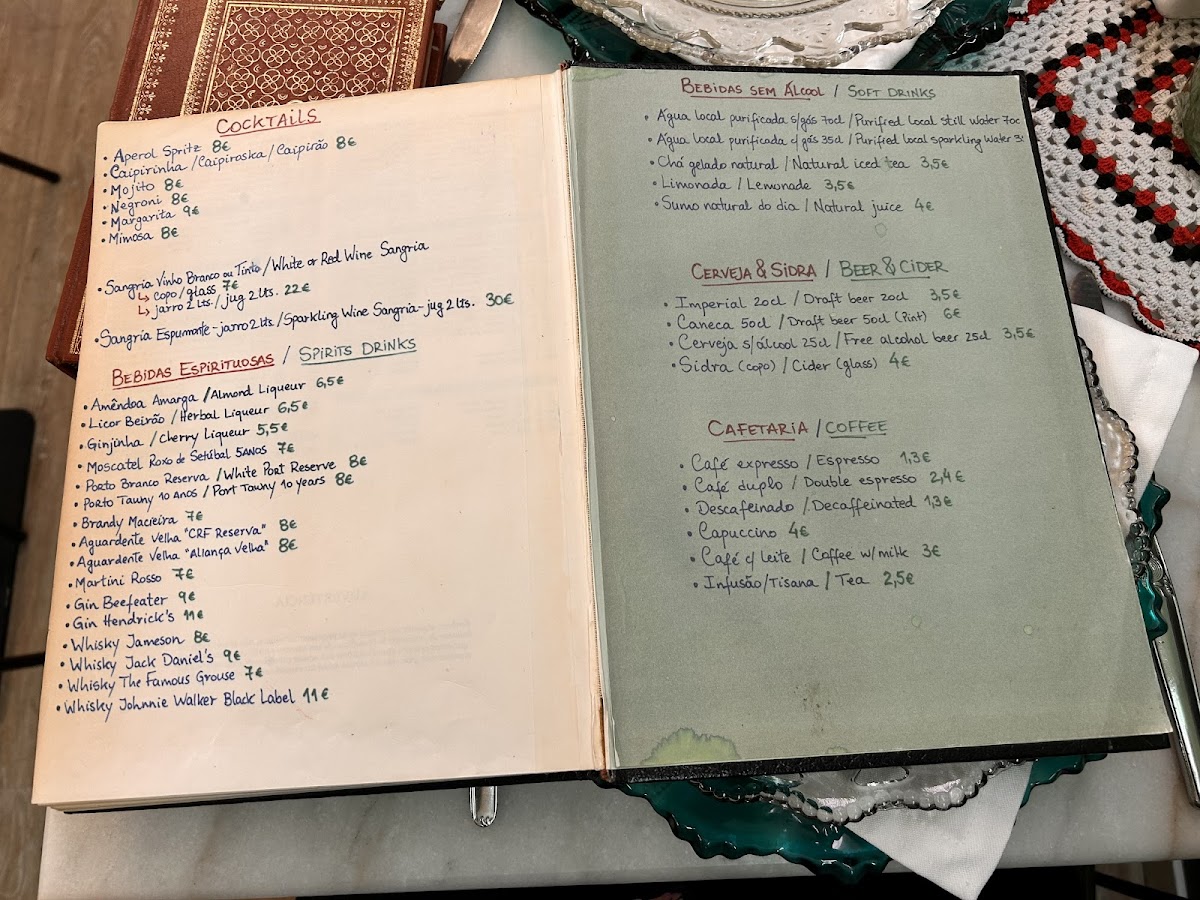 COCKTAILS
• Aperol Spritz 8€
• Caipirinha / Caipiroska / Caipirão 8€
• Mojito 8€
• Negroni 8€
• Margarita 9€
• Mimosa 8€
• Sangria Vinho Branco ou Tinto / White or Red Wine Sangria
↳ copo / glass 7€
↳ jarro 2 lts. / jug 2 lts. 22€
• Sangria Espumante - jarro 2 lts. / Sparkling Wine Sangria - jug 2 lts. 30€
BEBIDAS ESPIRITUOSAS / SPIRITS DRINKS
• Amêndoa Amarga / Almond Liqueur 6,5€
• Licor Beirão / Herbal Liqueur 6,5€
• Ginjinha / Cherry Liqueur 5,5€
• Moscatel Roxo de Setúbal 5 ANOS 7€
• Porto Branco Reserva / White Port Reserve 8€
• Porto Tawny 10 Anos / Port Tawny 10 years 8€
• Brandy Macieira 7€
• Aguardente Velha "CRF Reserva" 8€
• Aguardente Velha "Aliança Velha" 8€
• Martini Rosso 7€
• Gin Beefeater 9€
• Gin Hendrick's 11€
• Whisky Jameson 8€
• Whisky Jack Daniel's 9€
• Whisky The Famous Grouse 7€
• Whisky Johnnie Walker Black Label 11€
BEBIDAS SEM ÁLCOOL / SOFT DRINKS
• Água local purificada s/gás 70cl / Purified local still water 70c
• Água local purificada c/gás 35cl / Purified local sparkling water 3
• Chá gelado natural / Natural iced tea 3,5€
• Limonada / Lemonade 3,5€
• Sumo natural do dia / Natural juice 4€
CERVEJA & SIDRA / BEER & CIDER
• Imperial 20cl / Draft beer 20cl 3,5€
• Caneca 50cl / Draft beer 50cl (Pint) 6€
• Cerveja s/álcool 25cl / Free alcohol beer 25cl 3,5€
• Sidra (copo) / Cider (glass) 4€
CAFETARIA / COFFEE
• Café expresso / Espresso 1,3€
• Café duplo / Double espresso 2,4€
• Descafeinado / Decaffeinated 1,3€
• Capuccino 4€
• Café c/ leite / Coffee w/milk 3€
• Infusão/Tisana / Tea 2,5€